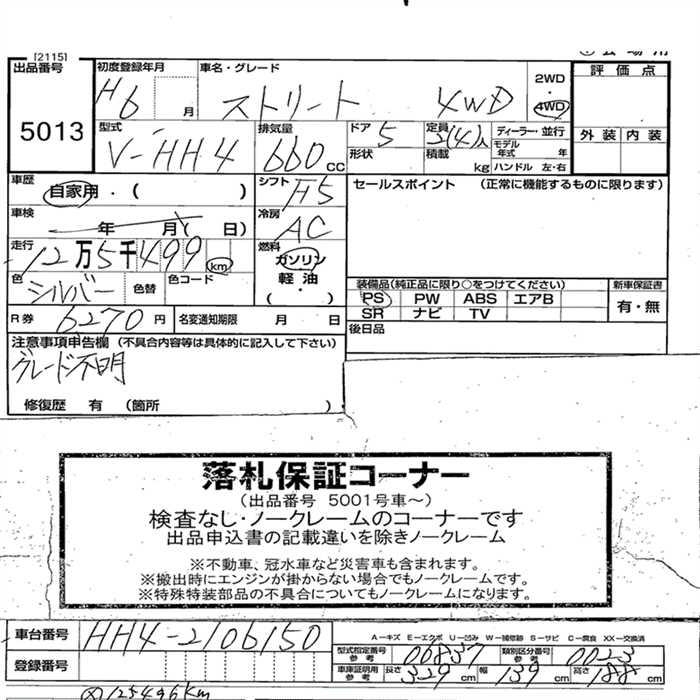 [2115]
出品番号
5013
初度登録年月
H6
月
車名・グレード
ストリート 4WD
2WD
・
4WD
評価点
外装 内装
型式
V-HH4
排気量
660 cc
ドア
5
形状
定員
2(4)人
積載
kg
ディーラー・並行
モデル年式 年
ハンドル 左・右
車歴
自家用・( )
シフト
F5
セールスポイント (正常に機能するものに限ります)
車検
年 月( 日)
冷房
AC
走行
12万5千499 km
燃料
ガソリン
軽油
( ・ )
色
シルバー
色替
色コード
装備品(純正品に限り○をつけてください)
新車保証書
PS PW ABS エアB
SR ナビ TV
有・無
R券
6,270 円
名変通知期限 月 日
後日品
注意事項申告欄 (不具合内容等は具体的に記入して下さい)
グレード不明
修復歴 有 (箇所 )
落札保証コーナー
(出品番号 5001号車〜)
検査なし・ノークレームのコーナーです
出品申込書の記載違いを除きノークレーム
※不動車、冠水車など災害車も含まれます。
※搬出時にエンジンが掛からない場合でもノークレームです。
※特殊特装部品の不具合についてもノークレームになります。
車台番号
HH4-2106150
A－キズ E－エクボ U－凹み W－補修跡 S－サビ C－腐食 XX－交換済
型式指定番号 参考
06837
類別区分番号 参考
0023
登録番号
車庫証明用 参考
長さ 329 cm 幅 139 cm 高さ 188 cm
125496km